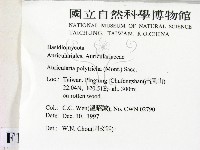 國立自然科學博物館
NATIONAL MUSEUM OF NATURAL SCIENCE
TAICHUNG, TAIWAN, R.O.CHINA
Basidiomycota
Auriculariales, Auriculariaceae
Auricularia polytricha (Mont.) Sacc.
Loc.: Taiwan, Pingtung
22.04N, 120.51E, alt. 300m
on rotten wood.
Col.: C.C. Wen No. CWN
Date: Dec. 10, 1997
Det.: W.N. Chou
F1